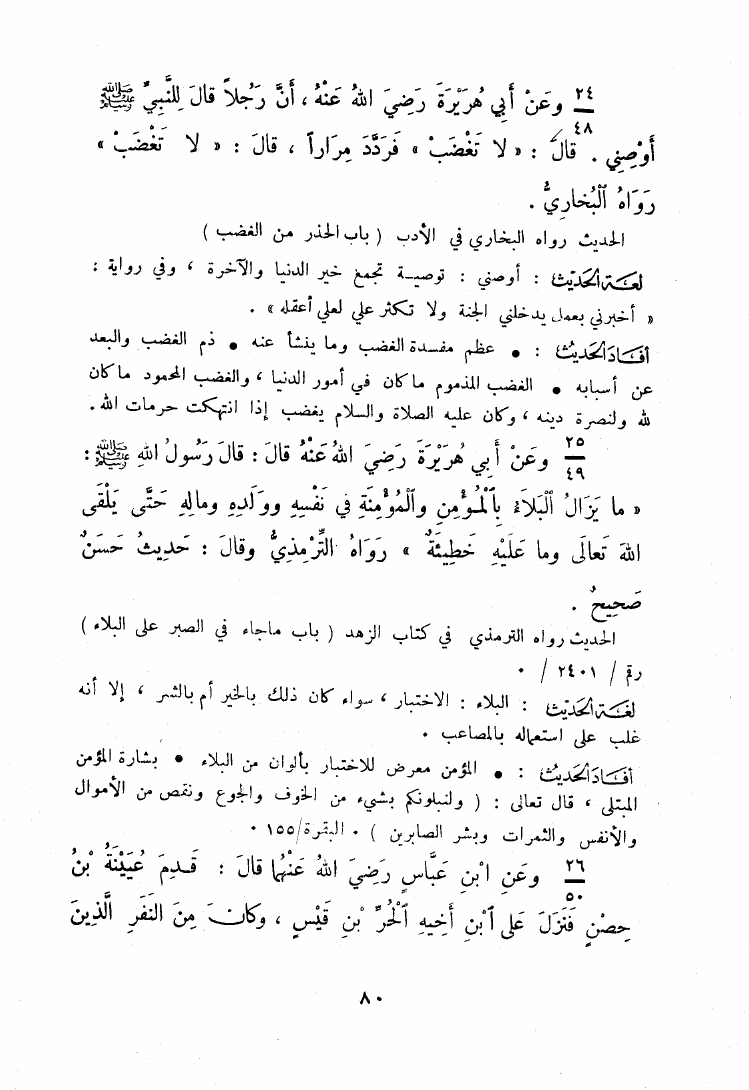 ٢٤
٤٨ وعَنْ أَبِي هُرَيْرَةَ رَضِيَ اللهُ عَنْهُ ، أَنَّ رَجُلاً قالَ لِلنَّبِيِّ ﷺ
أَوْصِنِي . قالَ : « لا تَغْضَبْ » فَرَدَّدَ مِرَاراً ، قالَ : « لا تَغْضَبْ »
رَوَاهُ ٱلْبُخارِيُّ .
الحديث رواه البخاري في الأدب ( باب الحذر من الغضب )
لغَة الحَديث : أوصني : توصيـة تجمع خير الدنيا والآخرة ، وفي رواية :
« أخبرني بعمل يدخلني الجنة ولا تكثر علي لعلي أعقله » .
أفَادَ الحَديثُ : • عظم مفسدة الغضب وما ينشأ عنه • ذم الغضب والبعد
عن أسبابه • الغضب المذموم ما كان في أمور الدنيا ، والغضب المحمود ما كان
لله ولنصرة دينه ، وكان عليه الصلاة والسلام يغضب إذا انتهكت حرمات الله .
٢٥
٤٩ وعَنْ أَبِي هُرَيْرَةَ رَضِيَ اللهُ عَنْهُ قالَ : قالَ رَسُولُ اللهِ ﷺ :
« ما يَزَالُ ٱلْبَلاَءُ بِٱلْمُؤْمِنِ وٱلْمُؤْمِنَةِ فِي نَفْسِهِ ووَلَدِهِ ومالِهِ حَتَّى يَلْقَى
اللهَ تَعالَى وما عَلَيْهِ خَطِيئَةٌ » رَوَاهُ التِّرْمِذِيُّ وقالَ : حَدِيثٌ حَسَنٌ
صَحِيحٌ .
الحديث رواه الترمذي في كتاب الزهد ( باب ماجاء في الصبر على البلاء )
رقم / ٢٤٠١ / .
لغَة الحَديث : البلاء : الاختبار ، سواء كان ذلك بالخير أم بالشر ، إلا أنه
غلب على استعماله بالمصاعب .
أفَادَ الحَديثُ : • المؤمن معرض للاختبار بألوان من البلاء • بشارة المؤمن
المبتلى ، قال تعالى : ( ولنبلونكم بشيء من الخوف والجوع ونقص من الأموال
والأنفس والثمرات وبشر الصابرين ) . البقرة/١٥٥ .
٢٦
٥٠ وعَنِ ابْنِ عَبَّاسٍ رَضِيَ اللهُ عَنْهُما قالَ : قَـدِمَ عُيَيْنَةُ بْنُ
حِصْنٍ فَنَزَلَ عَلى ٱبْنِ أَخِيهِ ٱلْحُرِّ بْنِ قَيْسٍ ، وكانَ مِنَ النَّفَرِ الَّذِينَ
٨٠